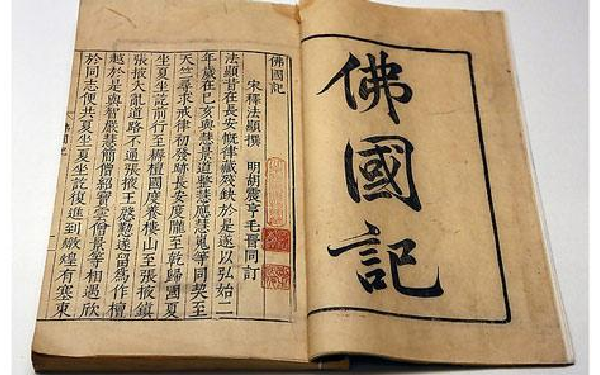 佛國記
佛國記
宋釋法顯撰　明胡震亨毛晉同訂
法顯昔在長安慨律藏殘缺於是遂以弘始二
年歲在己亥與慧景道整慧應慧嵬等同契至
天竺尋求戒律初發跡長安度隴至乾歸國夏
坐夏坐訖前行至耨檀國度養樓山至張掖鎮
張掖大亂道路不通張掖王慇懃遂留爲作檀
越於是與智嚴慧簡僧紹寶雲僧景等相遇欣
於同志便共夏坐夏坐訖復進到燉煌有塞東